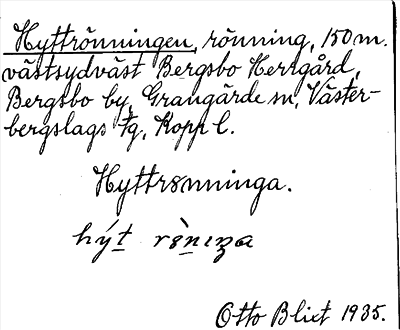 Hyttrönningen, rönning, 150 m.
västsydväst Bergsbo Herrgård,
Bergsbo by, Grangärde sn, Väster-
bergslags fg, Kopp l.
Hyttrønninga.
Otto Blixt 1935.